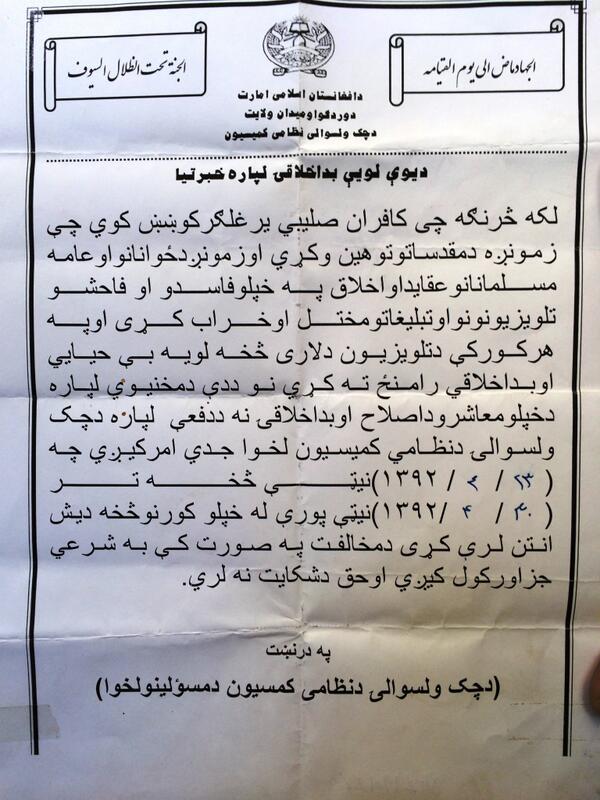 الجنة تحت الظلال السيوف
الجهاد ماض الی یوم القیامه
دافغانستان اسلامی امارت
دوردګ او میدان ولایت
دچک ولسوالی نظامی کمیسیون
دیوې لویې بداخلاقۍ لپاره خبرتیا
لکه څرنګه چی کافران صلیبي یرغلګر کوښښ کوي چې
زمونږه دمقدساتو توهین وکړي اوزمونږ دځوانانو او عامه
مسلمانانو عقاید او اخلاق په خپلو فاسدو او فاحشو
تلویزیونونو او تبلیغاتو مختل او خراب کړی او په
هر کور کې دتلویزیون دلاری څخه لویه بې حیایي
او بداخلاقي رامنځ ته کړي نو ددې دمخنیوي لپاره
دخپلو معاشرو داصلاح او بداخلاقی نه ددفعي لپاره دچک
ولسوالۍ دنظامي کمیسیون لخوا جدي امر کیږي چه
( ۲۳ / ۲ / ۱۳۹۲) نیټې څخه تر
( ۳۰ / ۴ / ۱۳۹۲) نیټې پوري له خپلو کورنو څخه دیش
انتن لري کړی دمخالفت په صورت کې به شرعي
جزا ورکول کیږي او حق دشکایت نه لري.
په درنښت
(دچک ولسوالی دنظامی کمسیون دمسؤلینو لخوا)